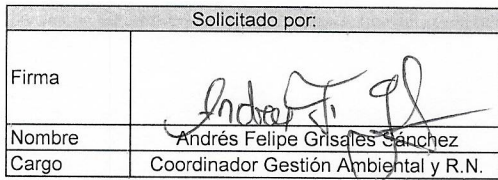 Solicitado por:
Firma
Andres F.
Nombre Andrés Felipe Grisales Sánchez
Cargo Coordinador Gestión Ambiental y R.N.